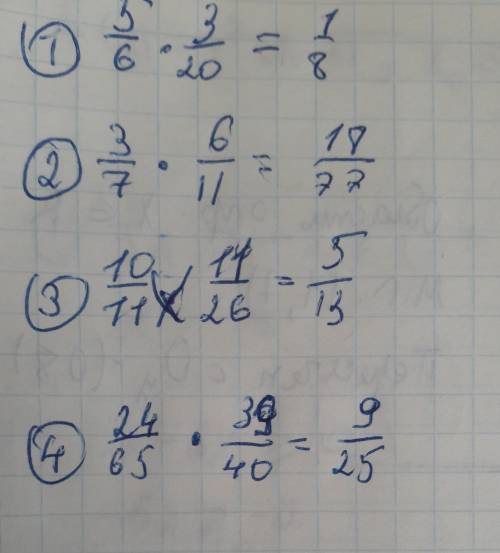 1 5/6 · 3/20 = 1/8
2 3/7 · 6/11 = 18/77
3 10/11 × 11/26 = 5/13
4 24/65 · 39/40 = 9/25